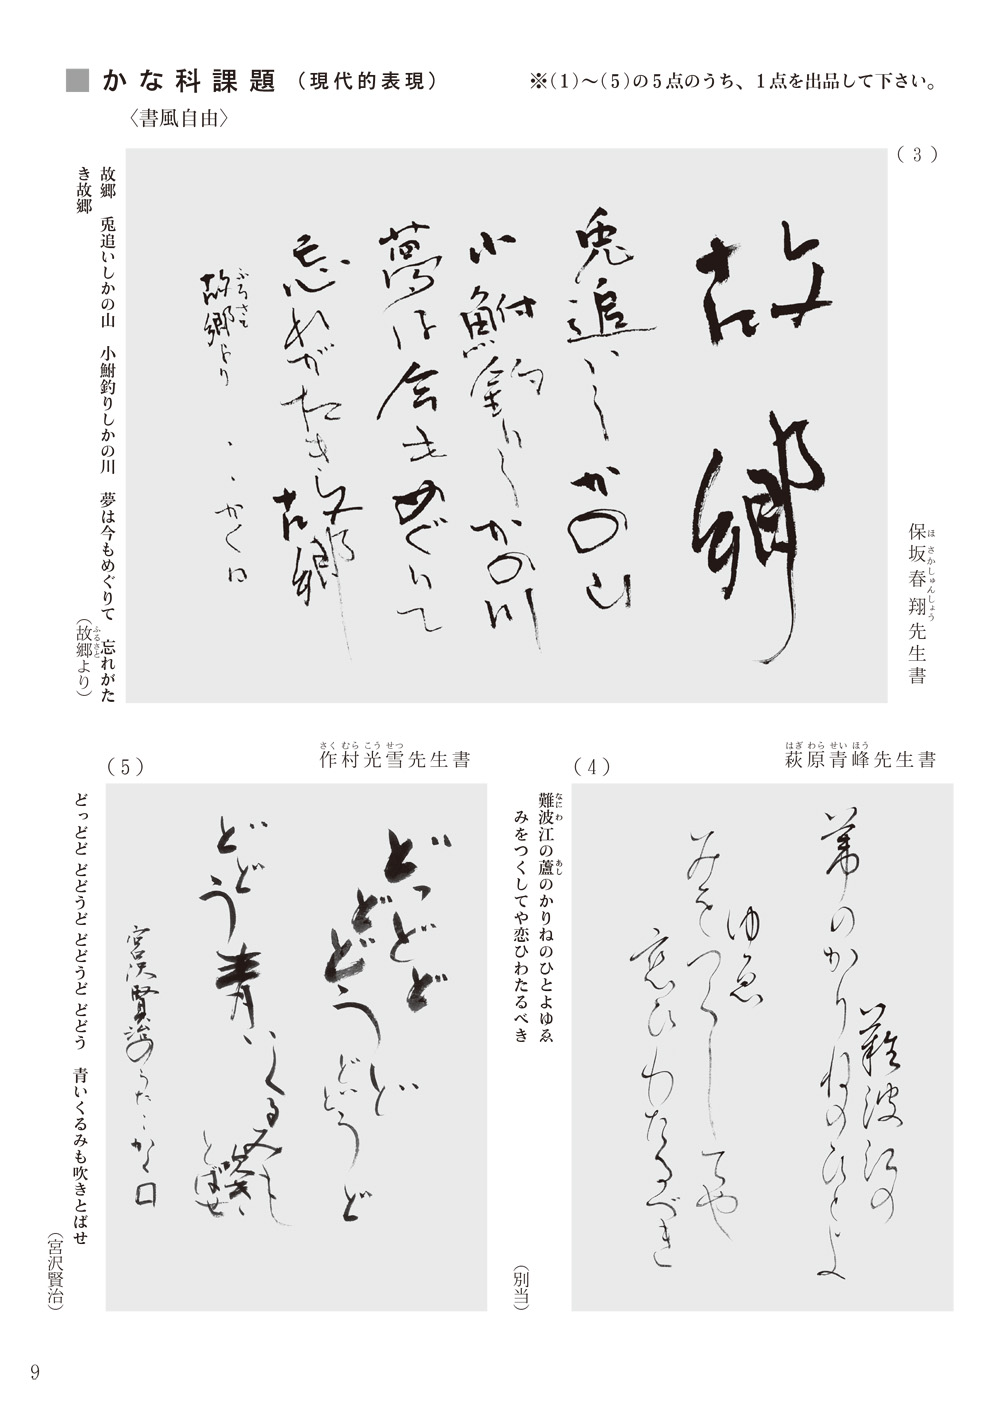 ■かな科課題（現代的表現）
※(1)～(5)の5点のうち、1点を出品して下さい。
〈書風自由〉
(3)
故郷
兎追いしかの山
小鮒釣りしかの川
夢は今もめぐりて
忘れがたき故郷
ふるさと
故郷より
かく
故郷　兎追いしかの山　小鮒釣りしかの川　夢は今もめぐりて　忘れがた
き故郷
（故郷より）
ふるさと
保坂春翔先生書
ほさかしゅんしょう
(4)
萩原青峰先生書
はぎわらせいほう
難波江の
葦のかりねのひとよ
ゆゑ
みをつくしてや
恋ひわたるべき
難波江の蘆のかりねのひとよゆゑ
なにわ
あし
みをつくしてや恋ひわたるべき
（別当）
(5)
作村光雪先生書
さくむらこうせつ
どっどど
どどうど
どどうど
どどう
青いくるみも
吹き
とばせ
宮沢賢治のうた かく
どっどど どどうど どどうど どどう　青いくるみも吹きとばせ
（宮沢賢治）
9